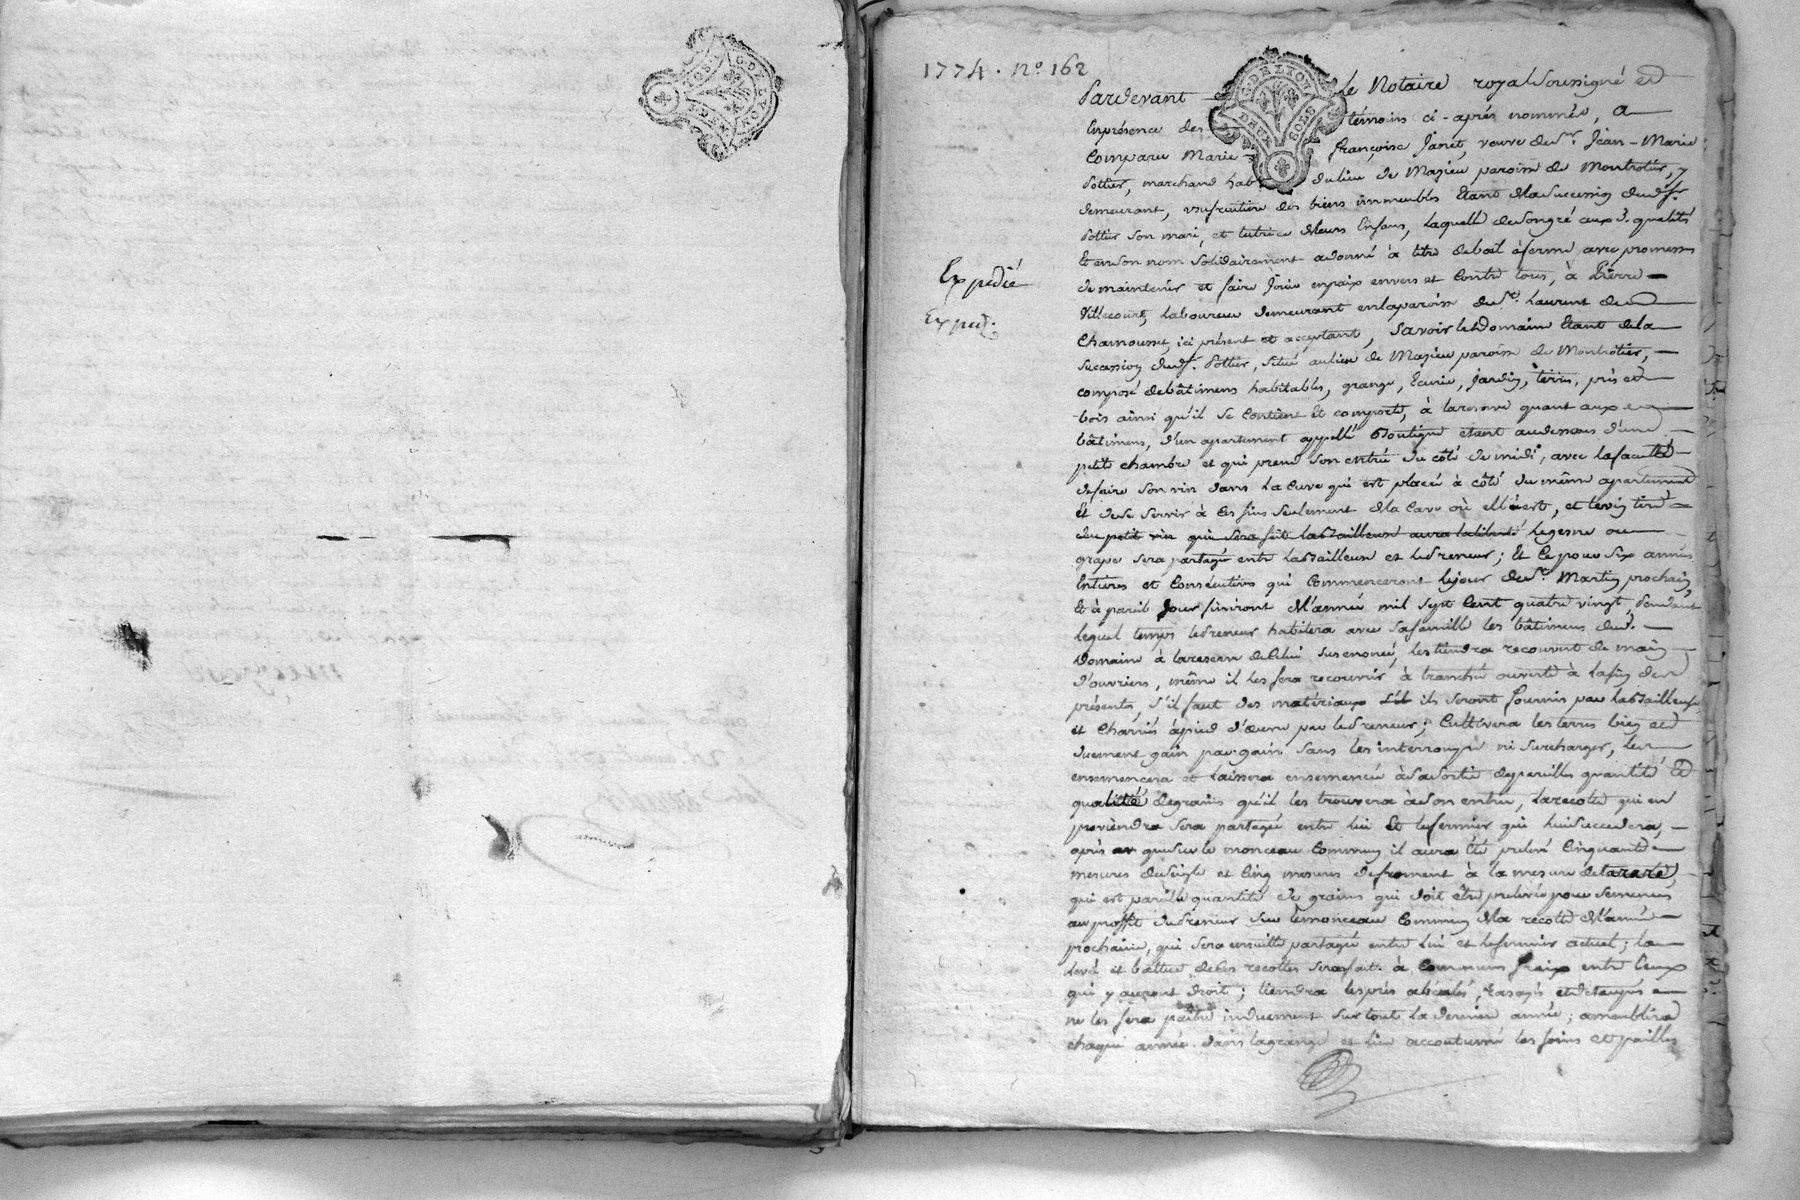 1774. nº. 162
G. DE LYON
DEUX SOLS
Expedié
Exped.
Pardevant le Notaire royal soussigné et
En présence des témoins ci-après nommés, a
Comparu Marie françoise Janet, veuve de sr. Jean-Marie
Pottier, marchand du lieu de Mazieu paroisse de Montrotier, y
demeurant, usufruitiere des biens immeubles Etant de la succession dudt. sr.
Pottier son mari, et tutrice de leurs Enfans, Laquelle de son gré aux d. qualités
Et en son nom solidairement a donné à titre de bail à ferme avec promesse
de maintenir et faire Jouir en paix envers et Contre tous, à Pierre
Villecourt, Laboureur demeurant en la paroisse de St. Laurent de
Chamousset, ici présent et acceptant, Savoir le Domaine Etant de la
succession dudt. sr. Pottier, situé au lieu de Mazieu paroisse de Montrotier,
composé de bâtimens habitables, grange, Ecurie, Jardin, terres, prés et
bois ainsi qu'il se Contient et comporte, à la reserve quant aux
bâtimens, d'un apartement appellé Boutique etant au dessous d'une
petite chambre et qui prend son entrée du côté de midi, avec la faculté
de faire son vin dans La Cuve qui est placée à côté du même apartement
Et de se servir à Ces fins seulement de la Cave où elle est, et le vin tiré
du petit vin qui sera fait la Bailleuse aura la liberté le gesne ou
grape sera partagé entre La Bailleuse et le Preneur; Et Ce pour six années
Entieres et Consécutives qui Commenceront le jour de St. Martin prochain,
Et à pareil Jour finiront de l'année mil sept Cent quatre vingt, Pendant
lequel temps le Preneur habitera avec sa famille les bâtimens dud.
Domaine à la reserve de Celui sus enoncé, les tiendra recouvert de main
d'ouvriers, même il les fera recouvrir à tranché ouverte à la fin des
présentes, s'il faut des matériaux ils seront fournis par La Bailleuse
et Charriés à pied d'œuvre par le Preneur; Cultivera les terres bien et
duement gain par gain sans les interrompre ni surcharger, les
ensemencera et Laissera ensemencée à sa sortie de pareilles quantité Et
qualité de grains qu'il les trouvera à son entrée, La recolte qui en
proviendra sera partagée entre lui Et le fermier qui lui succedera,
après que sur le monceau Commun il aura été prelevé Cinquante
mesures de seigle et Cinq mesures de froment à la mesure de tarare,
qui est pareille quantité de grains qui doit être prelevée pour semences
au proffit du Preneur sur le monceau Commun de la récolte de l'année
prochaine, qui sera ensuitte partagée entre lui et le fermier actuel; la
levée et battue de Ces recoltes sera fait à Communs fraix entre Ceux
qui y auront droit; tiendra les prés abéalés, rasagés et détaupés
ne les fera paître induement sur tout la derniere année; ameublira
chaque année dans la grange et lieu accoutumé les foins et pailles